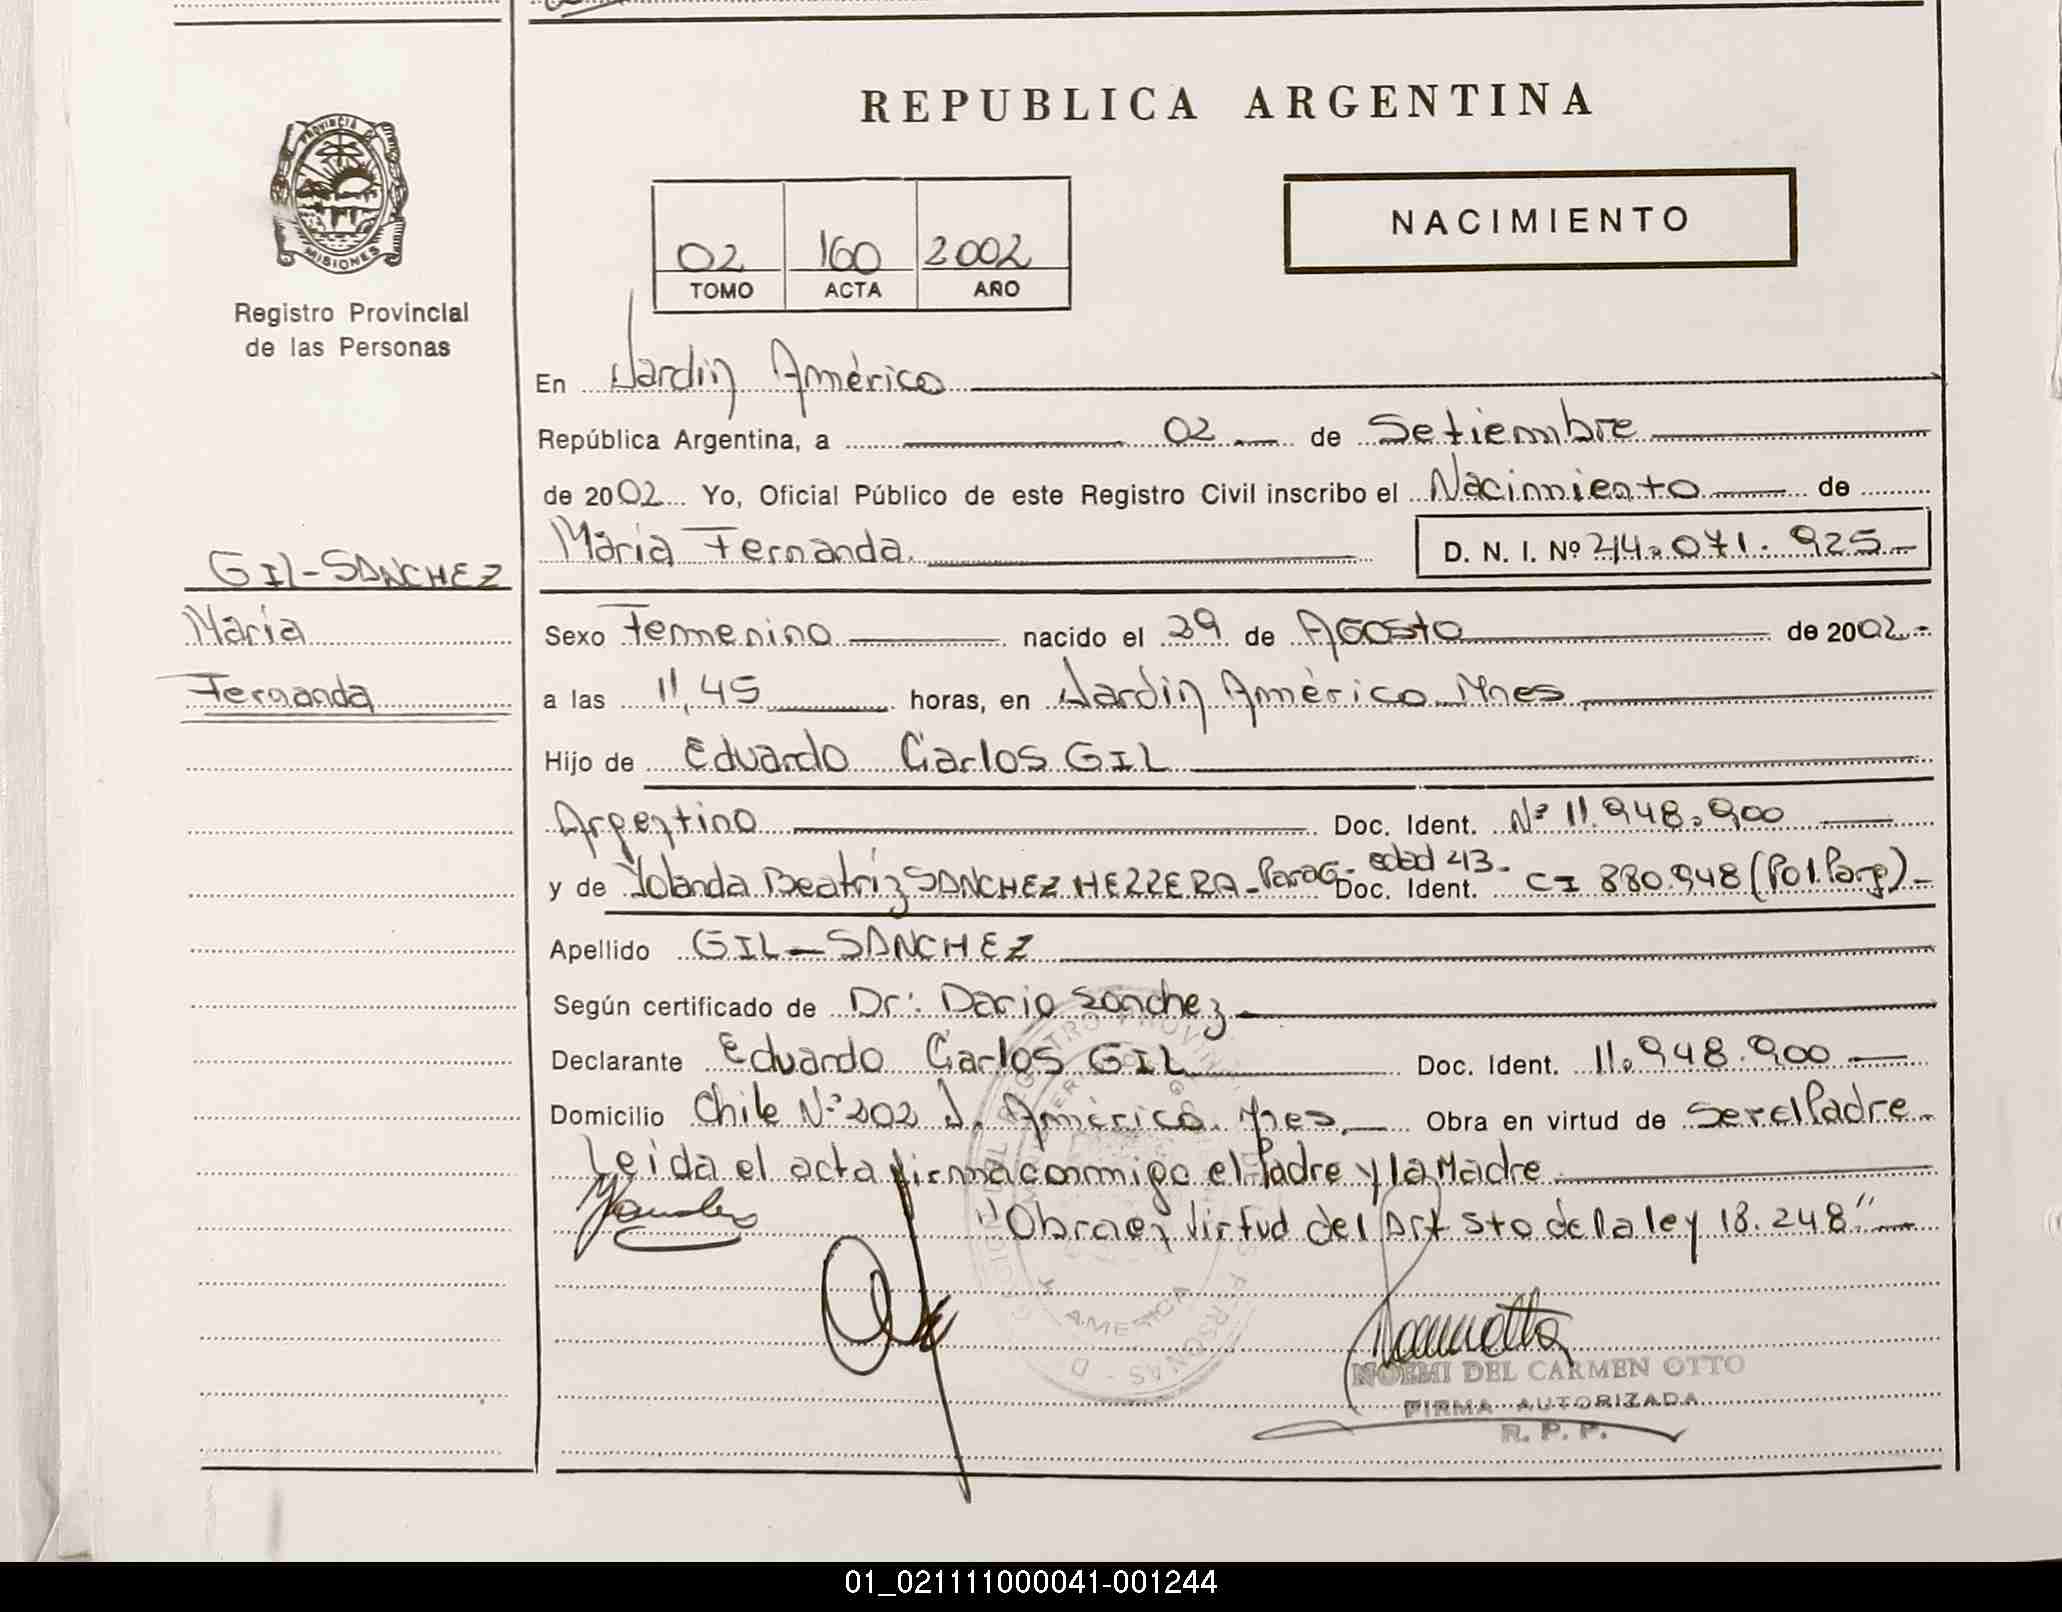 REPUBLICA ARGENTINA
PROVINCIA DE
MISIONES
Registro Provincial
de las Personas
02 160 2002
TOMO ACTA AÑO
NACIMIENTO
En Jardín América
República Argentina, a 02 de Setiembre
de 2002 Yo, Oficial Público de este Registro Civil inscribo el Nacimiento de
María Fernanda. D. N. I. Nº 44.071.925-
GIL-SANCHEZ
María
Fernanda
Sexo Femenino nacido el 29 de Agosto de 2002.-
a las 11,45 horas, en Jardín América Mnes
Hijo de Eduardo Carlos GIL
Argentino Doc. Ident. Nº 11.948.900
y de Yolanda Beatriz SANCHEZ HERRERA - Parag. edad 43.- Doc. Ident. CI 880.948 (Pol. Parg) -
Apellido GIL - SANCHEZ
Según certificado de Dr: Dario Sanchez
Declarante Eduardo Carlos GIL Doc. Ident. 11.948.900
Domicilio Chile Nº 202 J. América. Mnes. Obra en virtud de ser el Padre
Leida el acta firma conmigo el Padre y la Madre
"Obra en virtud del Art 5to de la ley 18.248"
J. AMERICA
NOEMI DEL CARMEN OTTO
FIRMA AUTORIZADA
R. P. P.
01_021111000041-001244